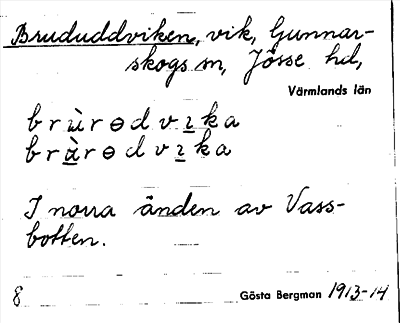 Brududdviken, vik, Gunnar-
skogs sn, Jösse hd,
Värmlands län
brùrɵdvıka
brὰrɵdvıka
I norra änden av Vass-
botten.
8 Gösta Bergman 1913-14